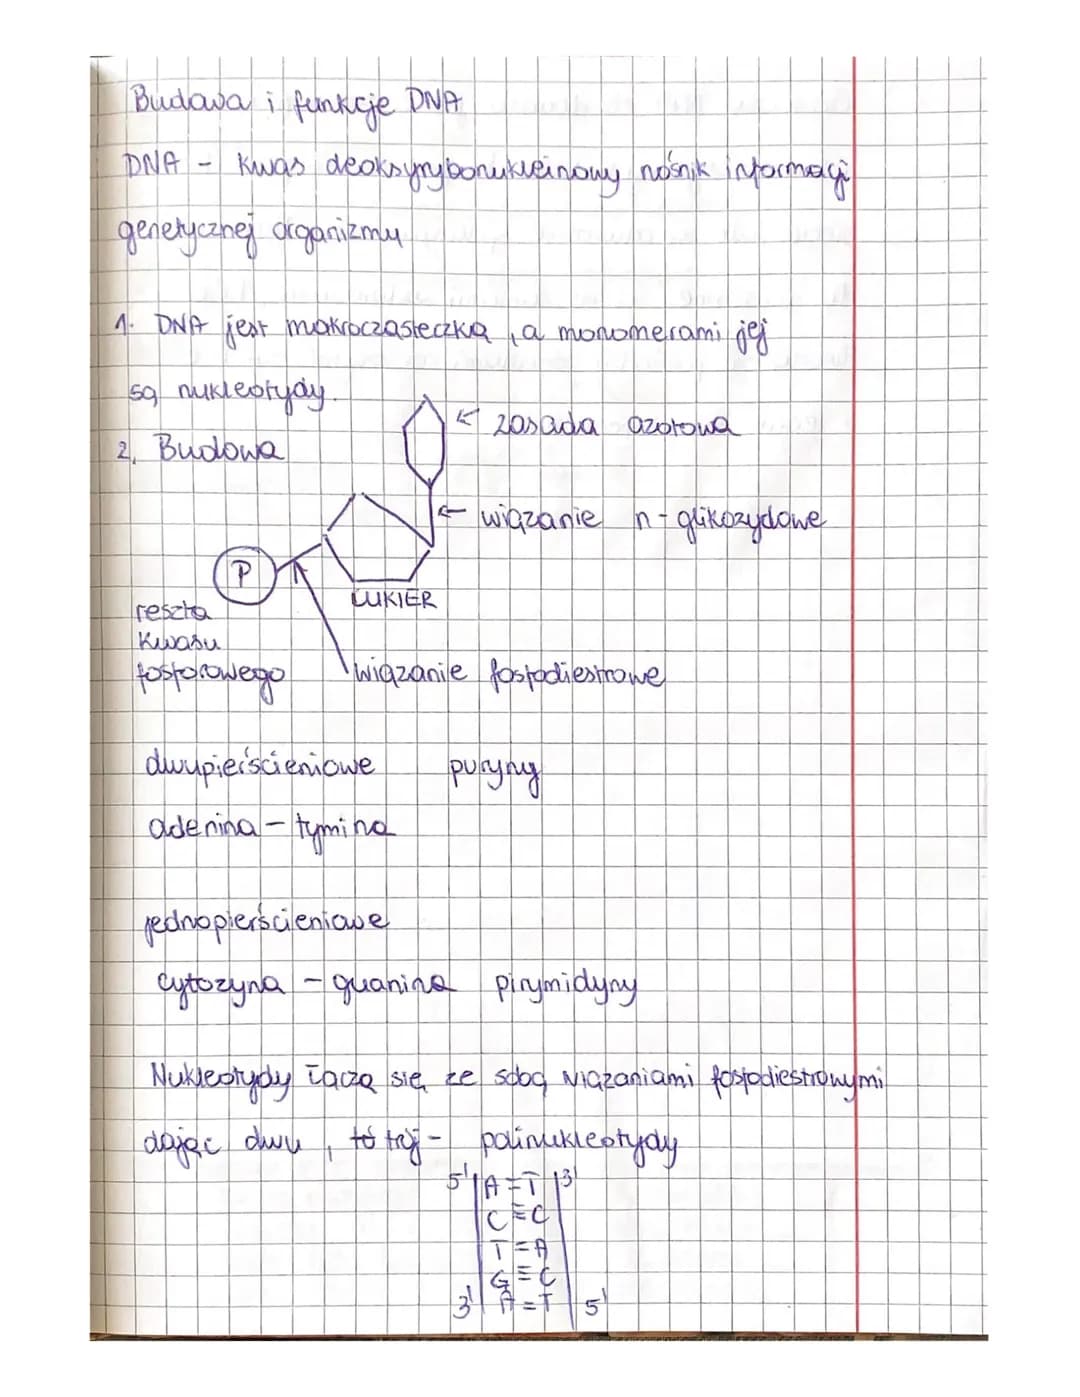 Budowa i funkcje DNA
DNA - kwas deoksyrybonukleinowy nośnik informacji
genetycznej organizmu
1. DNA jest makrocząsteczką, a monomerami jej
są nukleotydy.
zasada azotowa
2. Budowa
wiązanie n-glikozydowe
P
CUKIER
reszta
kwasu
fosforowego
wiązanie fosfodiestrowe
dwupierścieniowe puryny
adenina - tymina
jednopierścieniowe
cytozyna - guanina pirymidyny
Nukleotydy łączą się ze sobą wiązaniami fosfodiestrowymi
dając dwu, trój- polinukleotydy
5' A=T 3'
C≡C
T=A
G≡C
3' A=T 5'